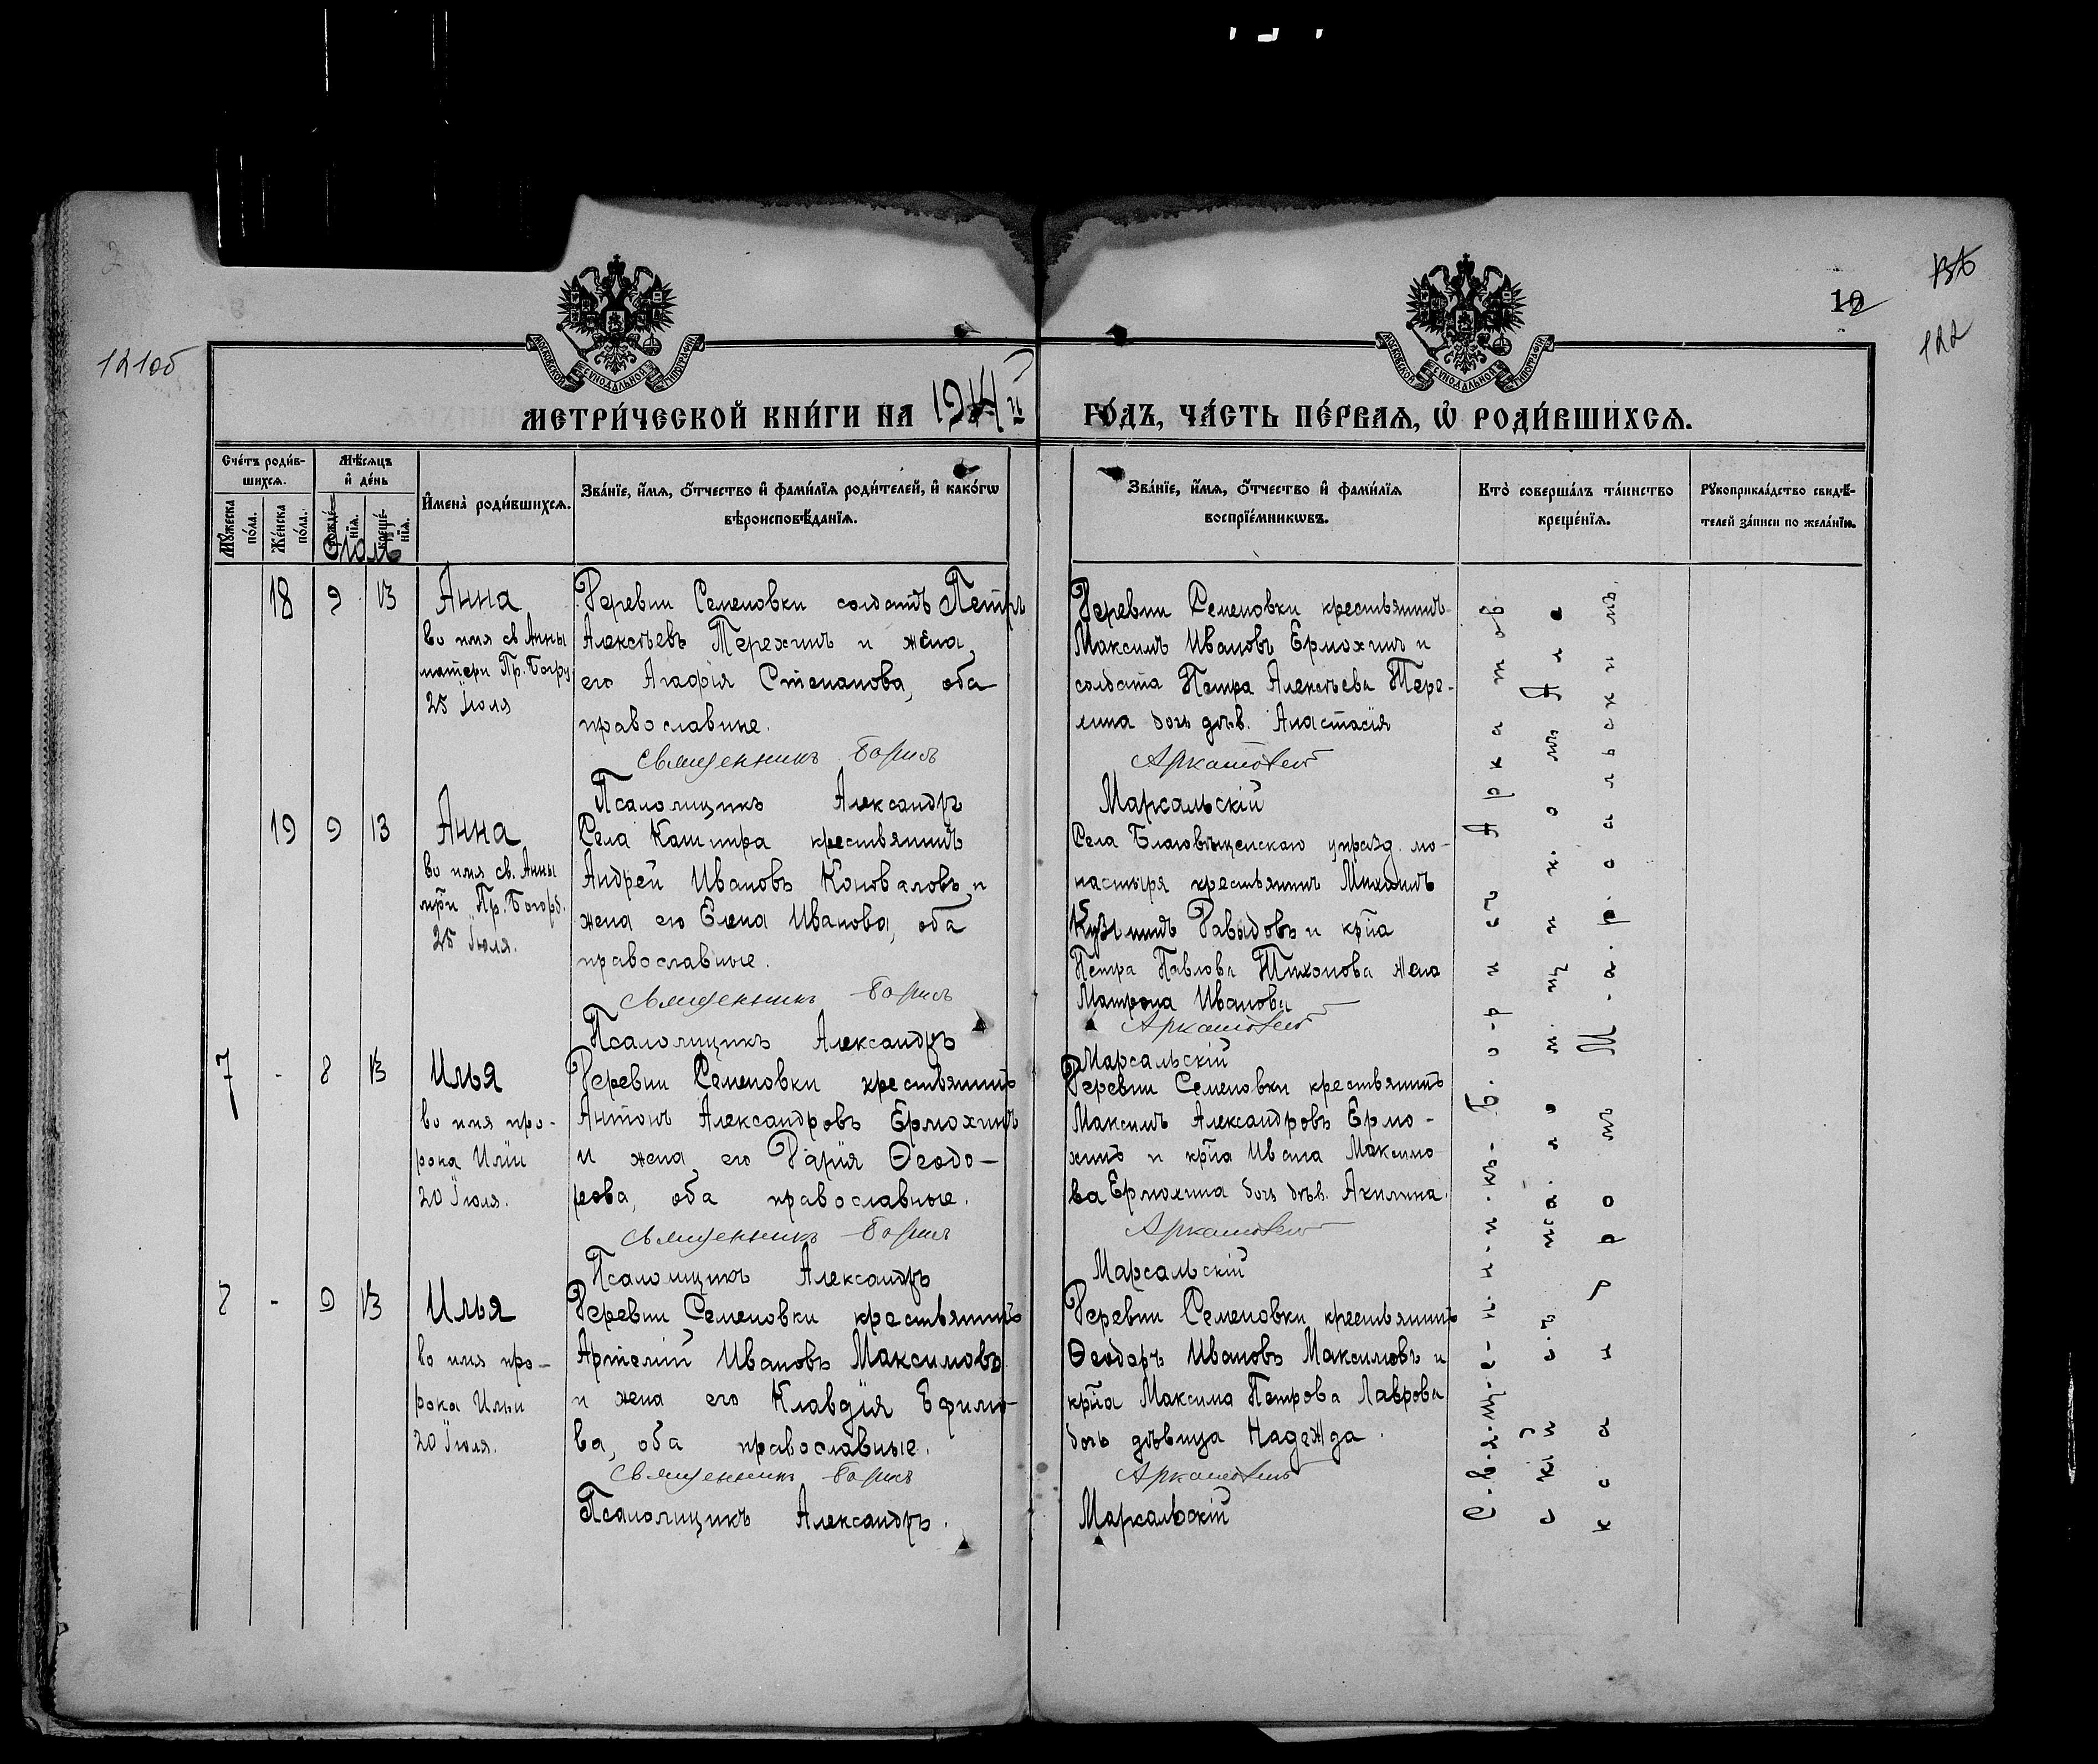 121об
12
122
МЕТРИЧЕСКОЙ КНИГИ НА 1914 й ГОДЪ, ЧАСТЬ ПЕРВАЯ, Ѡ РОДИВШИХСЯ.
Счетъ родив-
шихся.
Мѣсяцъ
и день
Мужеска пола.
Женска пола.
рожде-
нія.
креще-
нія.
Имена родившихся.
Званіе, имя, отчество и фамилія родителей, и какогѡ
вѣроисповѣданія.
Званіе, имя, отчество и фамилія
воспріемникѡвъ.
Кто совершалъ таинство
крещенія.
Рукоприкладство свидѣ-
телей записи по желанію.
18 9 13 Анна
во имя св Анны
матери Пр. Богру
25 Іюля
Деревни Семеновки солдатъ Петръ
Алексѣевъ Терехинъ и жена
его Агафія Степанова, оба
православные.
Священникъ Борисъ
Псаломщикъ Александръ
Деревни Семеновки крестьянинъ
Максимъ Ивановъ Ермохинъ и
солдата Петра Алексѣева Тере-
хина дочь дѣв. Анастасія
Аркатовъ
Марсальскій
19 9 13 Анна
во имя св. Анны
мтри Пр. Богорб.
25 Іюля.
Села Кашпира крестьянинъ
Андрей Ивановъ Коноваловъ и
жена его Елена Иванова, оба
православные.
Священникъ Борисъ
Псаломщикъ Александръ
Села Благовѣщенскаго упразд. мо-
настыря крестьянинъ Михаилъ
Кузьминъ Давыдовъ и крна
Петра Павлова Тихонова жена
Матрона Иванова
Аркатовъ
Марсальскій
7 - 8 13 Илья
во имя про-
рока Иліи
20 Іюля.
Деревни Семеновки крестьянинъ
Антонъ Александровъ Ермохинъ
и жена его Дарія Ѳеодо-
рова, оба православные.
Священникъ Борисъ
Псаломщикъ Александръ
Деревни Семеновки крестьянинъ
Максимъ Александровъ Ермо-
хинъ и крна Ивана Максимо
ва Ермохина дочь дѣв. Акилина.
Аркатовъ
Марсальскій
8 - 9 13 Илья
во имя про-
рока Ильи
20 Іюля.
Деревни Семеновки крестьянинъ
Артемій Ивановъ Максимовъ
и жена его Клавдія Ефимо-
ва, оба православные.
Священникъ Борисъ
Псаломщикъ Александръ.
Деревни Семеновки крестьянинъ
Ѳеодоръ Ивановъ Максимовъ и
крна Максима Петрова Лаврова
дочь дѣвица Надежда.
Аркатовъ
Марсальскій
Священникъ Борисъ Аркатовъ